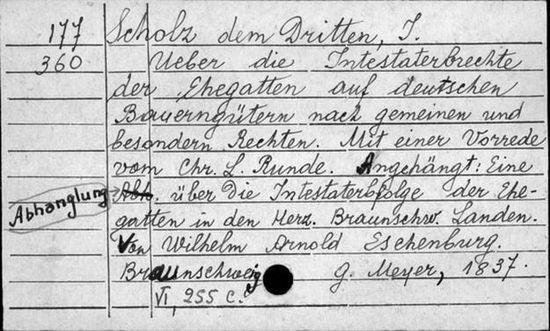 177 Scholz dem Dritten, J.
360 Ueber die Intestaterbrechte
der Ehegatten auf deutschen
Bauerngütern nach gemeinen und
besondern Rechten. Mit einer Vorrede
vom Chr. L. Runde. Angehängt: Eine
Abhanglung Abh. über die Intestaterbfolge der Ehe-
gatten in den Herz. Braunschw. Landen.
Von Wilhelm Arnold Eschenburg.
Braunschweig G. Meyer, 1837.
VI, 255 C.